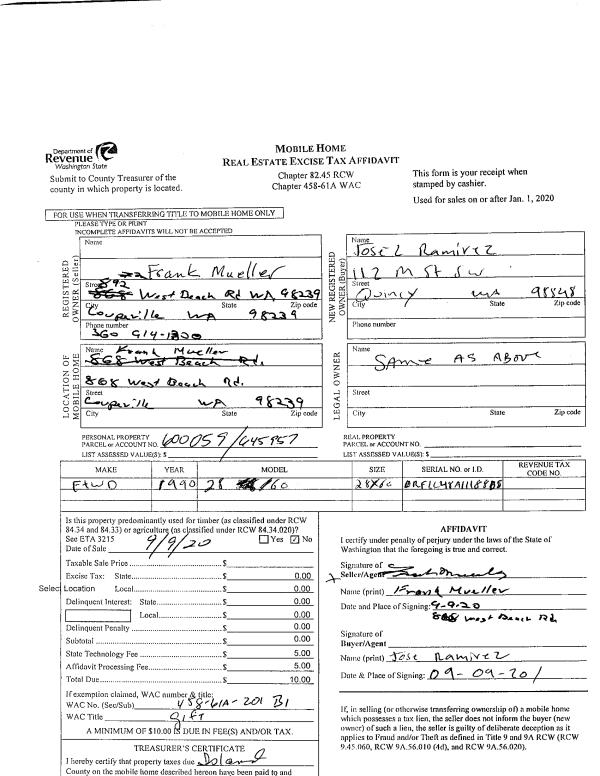 Department of
Revenue
Washington State
Submit to County Treasurer of the
county in which property is located.
MOBILE HOME
REAL ESTATE EXCISE TAX AFFIDAVIT
Chapter 82.45 RCW
Chapter 458-61A WAC
This form is your receipt when
stamped by cashier.
Used for sales on or after Jan. 1, 2020
FOR USE WHEN TRANSFERRING TITLE TO MOBILE HOME ONLY
PLEASE TYPE OR PRINT
INCOMPLETE AFFIDAVITS WILL NOT BE ACCEPTED
REGISTERED
OWNER (Seller)
Name
Frank Mueller
892
Street
868 West Beach Rd WA 98239
City State Zip code
Coupeville WA 98239
Phone number
360 914-1320
NEW REGISTERED
OWNER (Buyer)
Name
Jose L Ramirez
112 M St SW
Street
Quincy WA 98848
City State Zip code
Phone number
LOCATION OF
MOBILE HOME
Name
Frank Mueller
868 West Beach Rd.
868 West Beach Rd.
Street
Coupeville WA 98239
City State Zip code
LEGAL OWNER
Name
SAME AS ABOVE
Street
City State Zip code
PERSONAL PROPERTY
PARCEL or ACCOUNT NO. 600059/645957
LIST ASSESSED VALUE(S): $
REAL PROPERTY
PARCEL or ACCOUNT NO.
LIST ASSESSED VALUE(S): $
MAKE YEAR MODEL SIZE SERIAL NO. or I.D. REVENUE TAX CODE NO.
FtWD 1990 28 /60 28x60
Is this property predominantly used for timber (as classified under RCW
84.34 and 84.33) or agriculture (as classified under RCW 84.34.020)?
See ETA 3215 Yes No
Date of Sale 9/9/20
Taxable Sale Price $
Excise Tax: State $ 0.00
Select Location Local $ 0.00
Delinquent Interest: State $ 0.00
Local $ 0.00
Delinquent Penalty $ 0.00
Subtotal $ 0.00
State Technology Fee $ 5.00
Affidavit Processing Fee $ 5.00
Total Due $ 10.00
If exemption claimed, WAC number & title:
WAC No. (Sec/Sub) 458-61A-201 B1
WAC Title gift
A MINIMUM OF $10.00 IS DUE IN FEE(S) AND/OR TAX.
TREASURER'S CERTIFICATE
I hereby certify that property taxes due Island
County on the mobile home described hereon have been paid to and
AFFIDAVIT
I certify under penalty of perjury under the laws of the State of
Washington that the foregoing is true and correct.
Signature of
Seller/Agent
Name (print) Frank Mueller
Date and Place of Signing: 9-9-20
868 West Beach Rd
Signature of
Buyer/Agent
Name (print) Jose Ramirez
Date & Place of Signing: 09-09-20/
If, in selling (or otherwise transferring ownership of) a mobile home
which possesses a tax lien, the seller does not inform the buyer (new
owner) of such a lien, the seller is guilty of deliberate deception as it
applies to Fraud and/or Theft as defined in Title 9 and 9A RCW (RCW
9.45.060, RCW 9A.56.010 (4d), and RCW 9A.56.020).